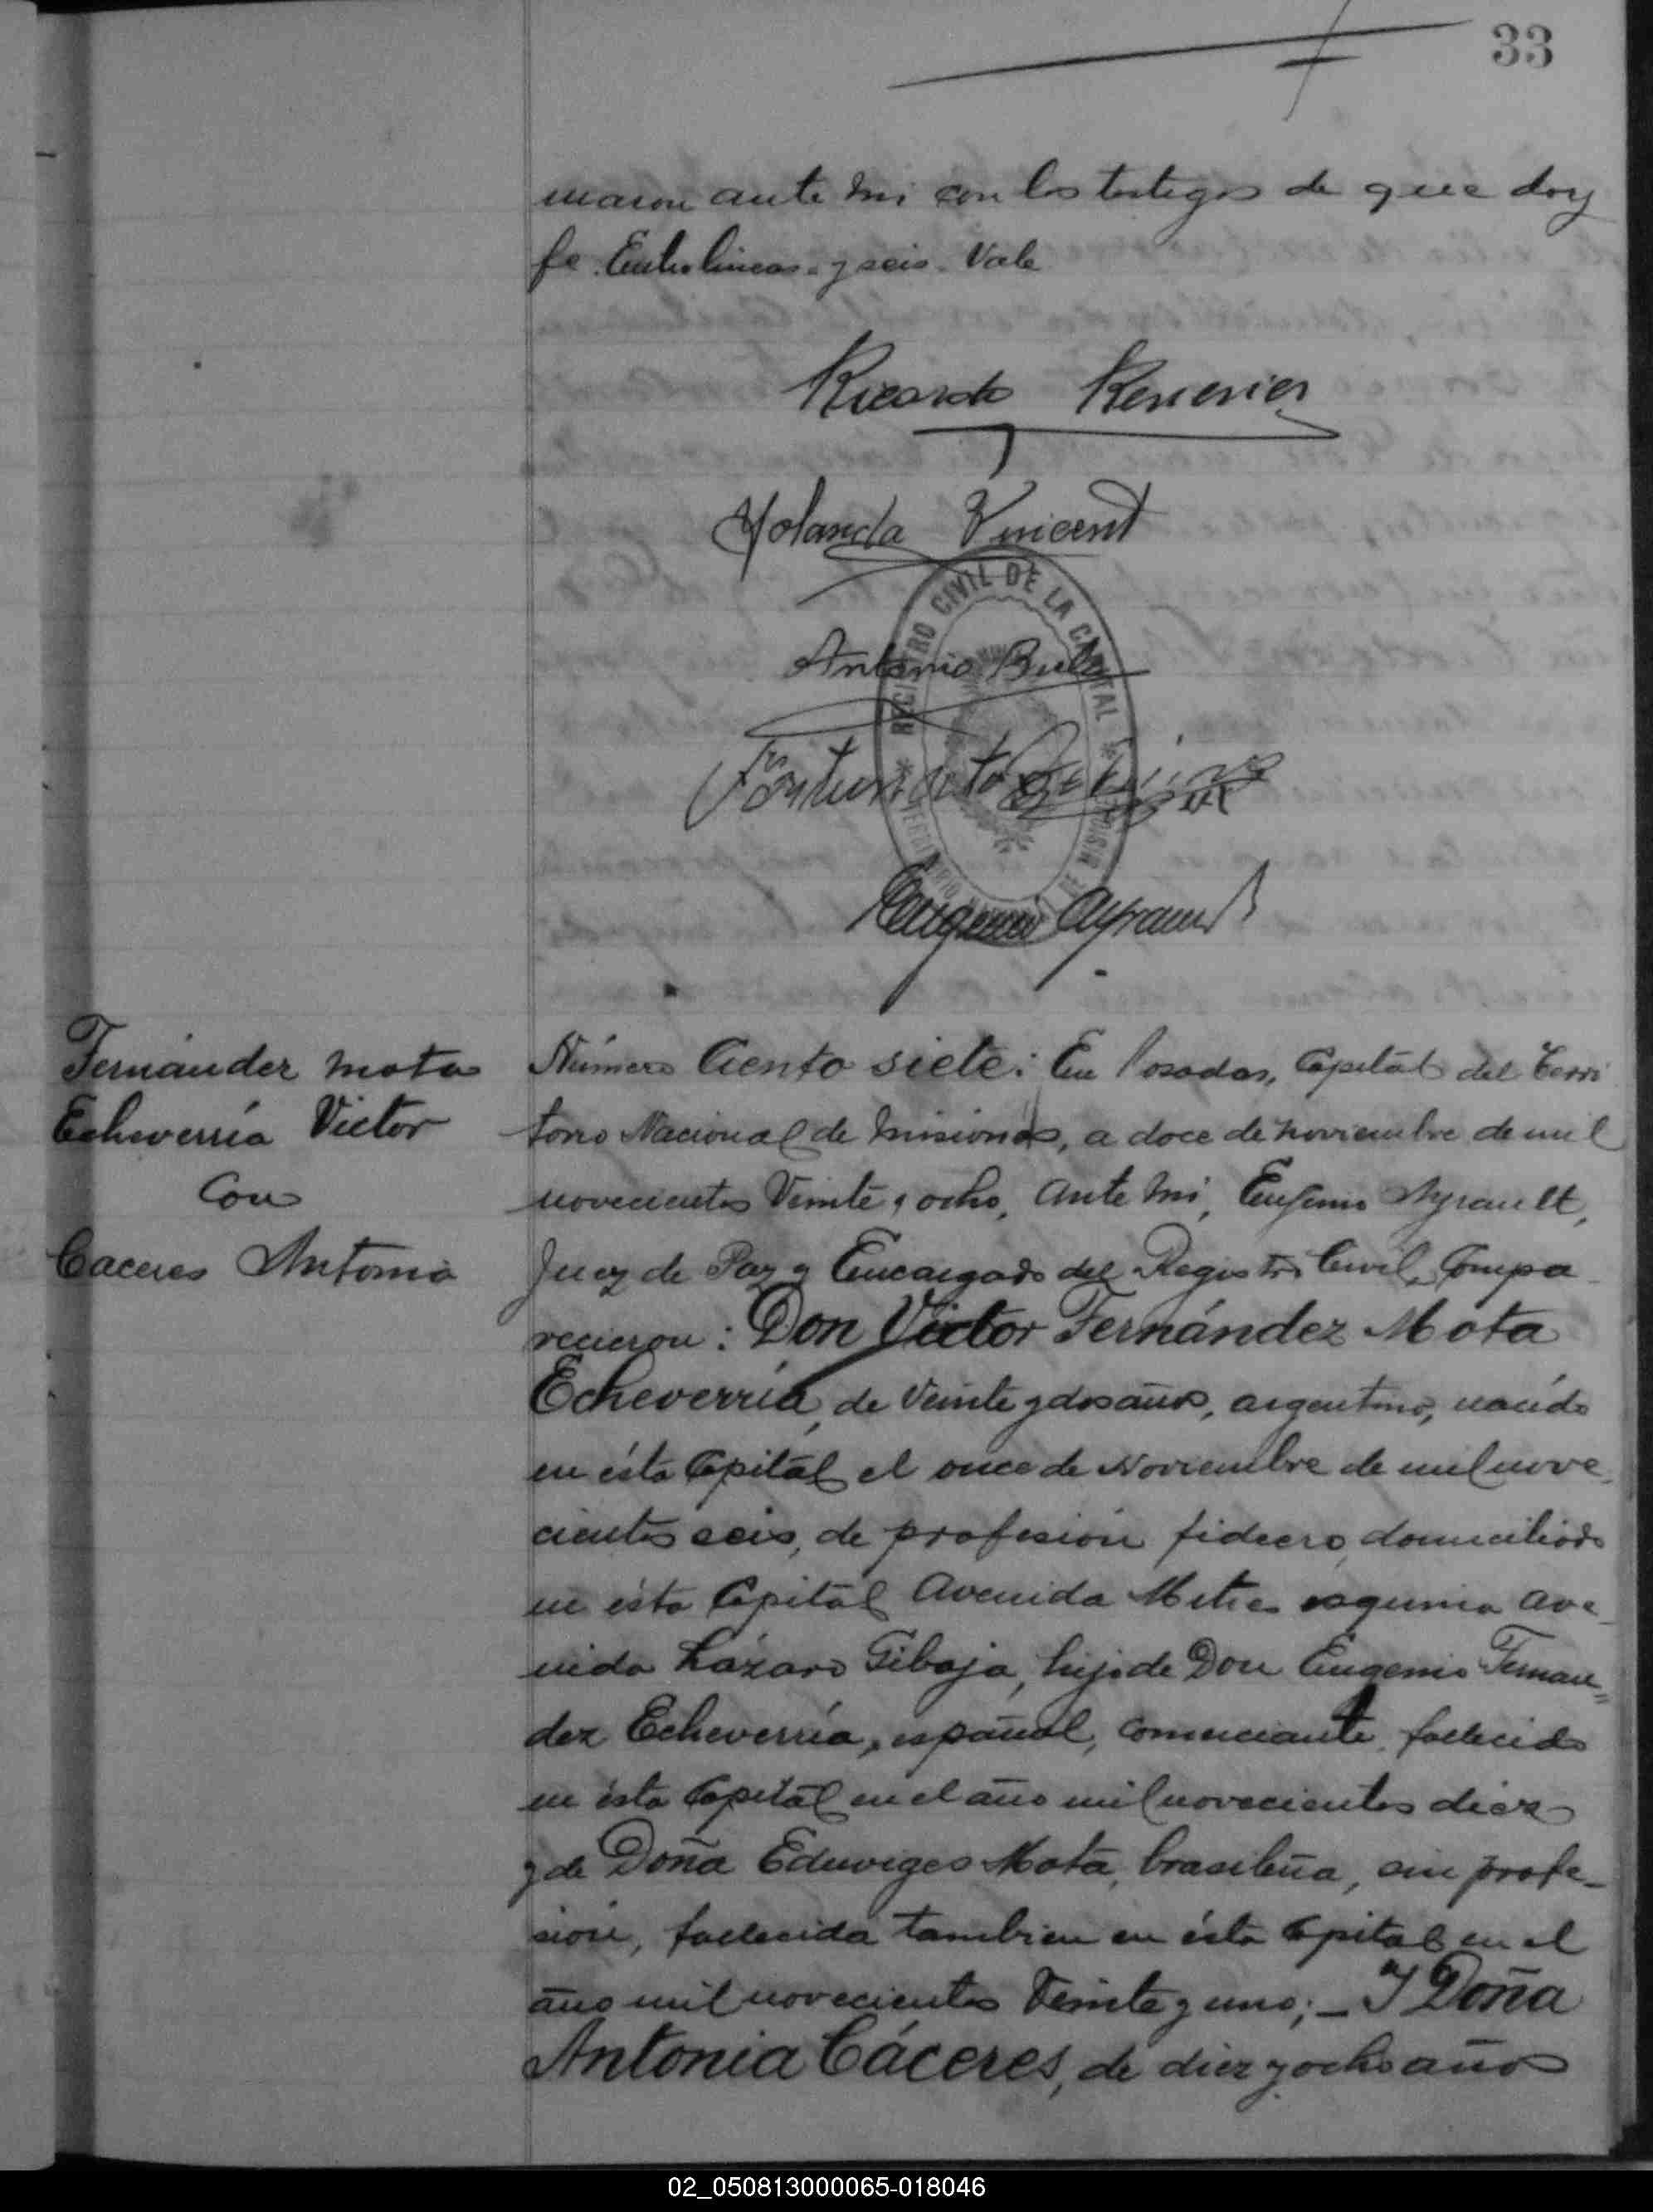 33
maron ante mi con los testigos de que doy
fe. Entre lineas - y seis - Vale
Ricardo
Yolanda Vincent
Antonio
Fortunato
REGISTRO CIVIL DE LA CAPITAL
TERRITORIO DE MISIONES
Eugenio Ayrault
Fernández Mota
Echeverría Victor
Con
Caceres Antonia
Número Ciento siete: En Posadas, Capital del Terri
torio Nacional de Misiones, a doce de noviembre de mil
novecientos Veinte y ocho, ante mi, Eugenio Ayrault,
Juez de Paz y Encargado del Registro Civil, Compa-
recieron: Don Victor Fernández Mota
Echeverría, de veinte y dos años, argentino, nacido
en ésta Capital el once de Noviembre de mil nove-
cientos seis, de profesión fideero, domiciliado
en ésta Capital Avenida Mitre esquina Ave-
nida Lázaro Gibaja, hijo de Don Eugenio Fernan=
dez Echeverría, español, comerciante, fallecido
en ésta Capital en el año mil novecientos diez
y de Doña Eduviges Mota, brasileña, sin profe-
sión, fallecida tambien en ésta Capital en el
año mil novecientos Veinte y uno; - Y Doña
Antonia Cáceres, de diez y ocho años
02_050813000065-018046